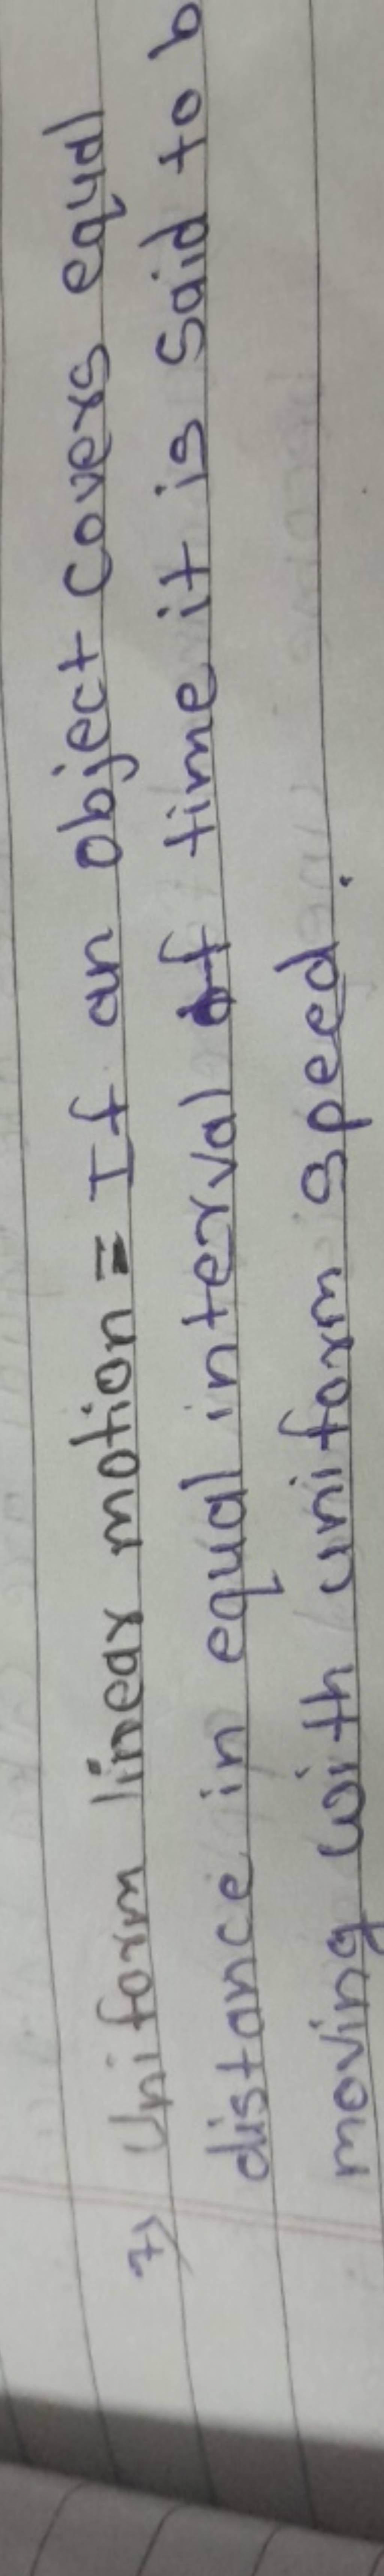 7) Uniform linear motion = If an object covers equal
distance in equal interval of time it is said to b
moving with uniform speed.